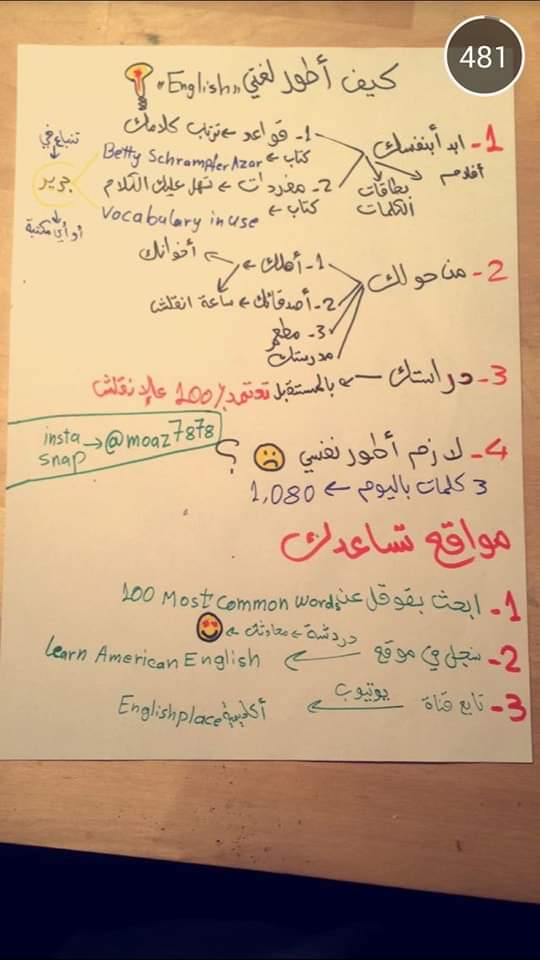 481
كيف أطور لغتي "English"
1- ابدأ بنفسك
أفلام
بطاقات الكلمات
1- قواعد ← ترتب كلامك
كتاب ← Betty Schrampfer Azar
2- مفردات ← تسهل عليك الكلام
كتاب ← Vocabulary in use
تنباع في
جرير
أو أي مكتبة
2- من حولك
1- أهلك ← أخوانك
2- أصدقائك ← ساعة انقلش
3- مطعم
مدرستك
3- دراستك ← بالمستقبل تعتمد 100% علإنقلش
4- لازم أطور نفسي ؟
3 كلمات باليوم ← 1,080
insta
snap → @moaz7878
مواقع تساعدك
1- ابحث بقوقل عن 100 Most Common Words
2- سجل في موقع ← Learn American English
دردشة + معاونك ←
3- تابع قناة يوتيوب ← أكاديمية Englishplace